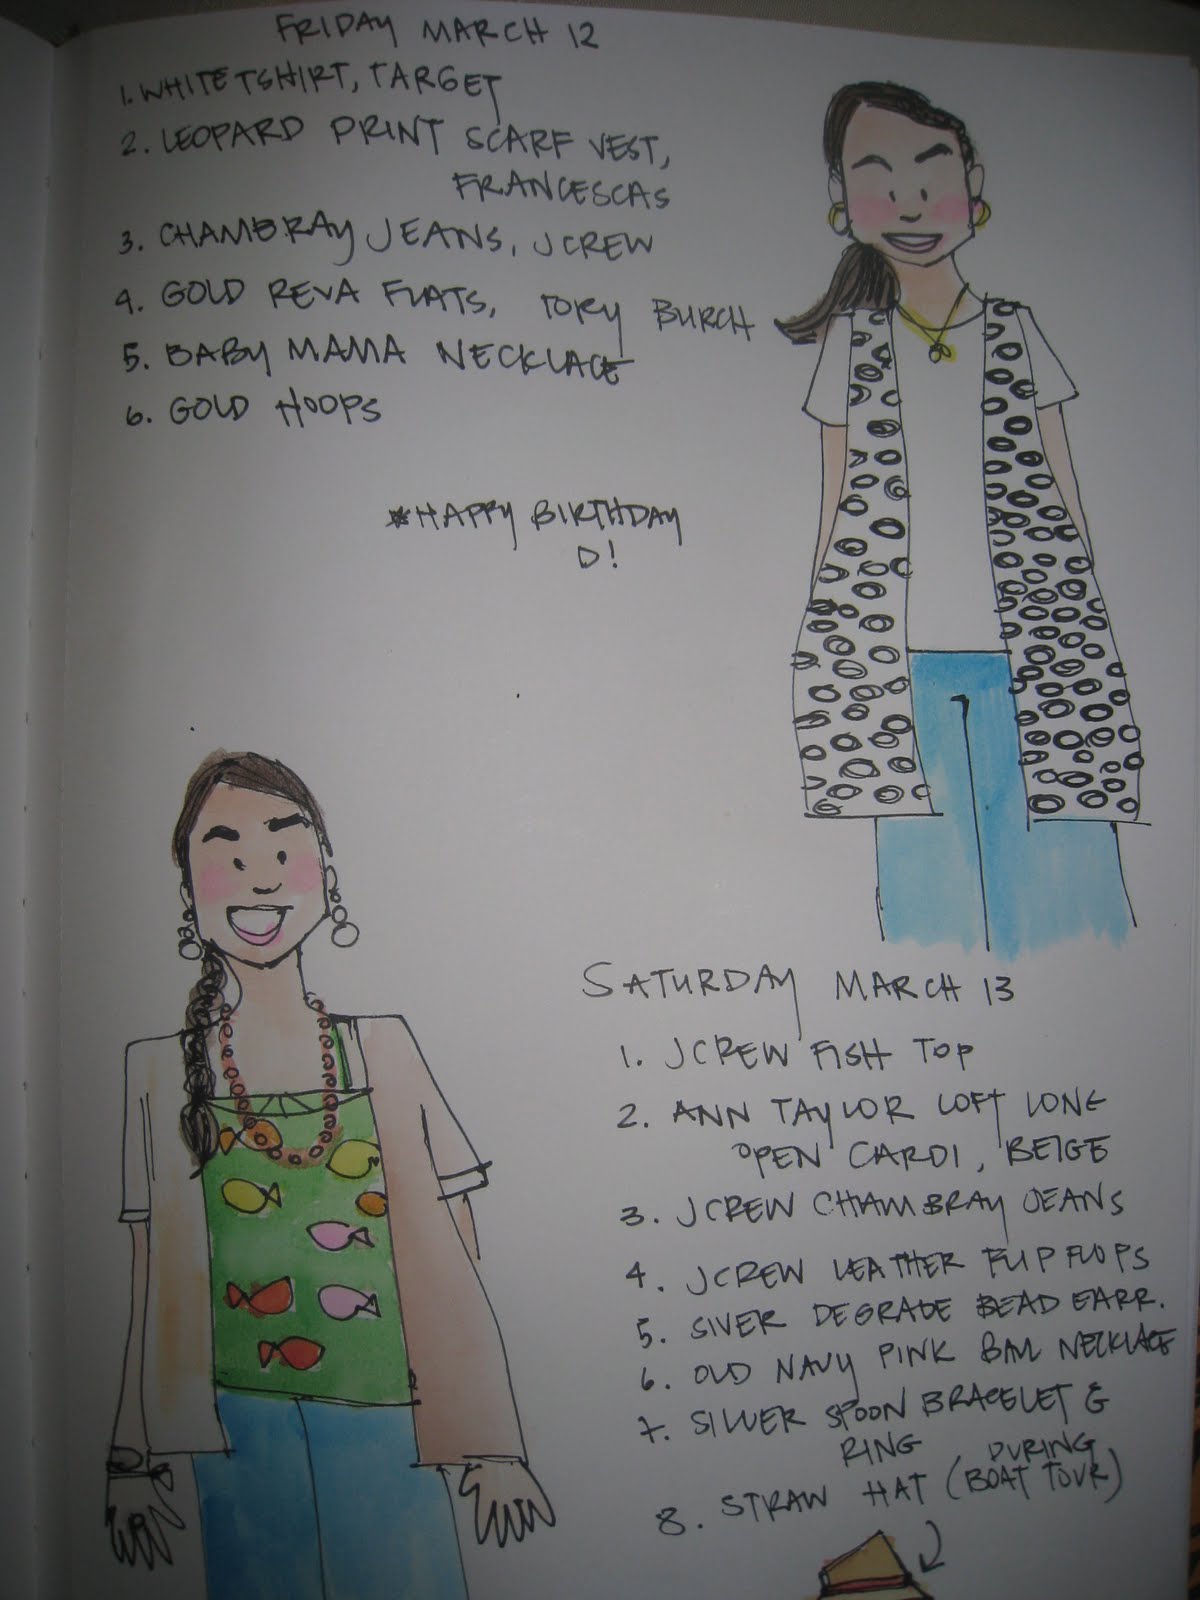 FRIDAY MARCH 12
1. WHITE TSHIRT, TARGET
2. LEOPARD PRINT SCARF VEST,
FRANCESCAS
3. CHAMBRAY JEANS, JCREW
4. GOLD REVA FLATS, TORY BURCH
5. BABY MAMA NECKLACE
6. GOLD HOOPS
*HAPPY BIRTHDAY
D!
SATURDAY MARCH 13
1. JCREW FISH TOP
2. ANN TAYLOR LOFT LONG
OPEN CARDI, BEIGE
3. JCREW CHAMBRAY JEANS
4. JCREW LEATHER FLIP FLOPS
5. SIVER DEGRADE BEAD EARR.
6. OLD NAVY PINK BALL NECKLACE
7. SILVER SPOON BRACELET &
RING
8. STRAW HAT (DURING
BOAT TOUR)